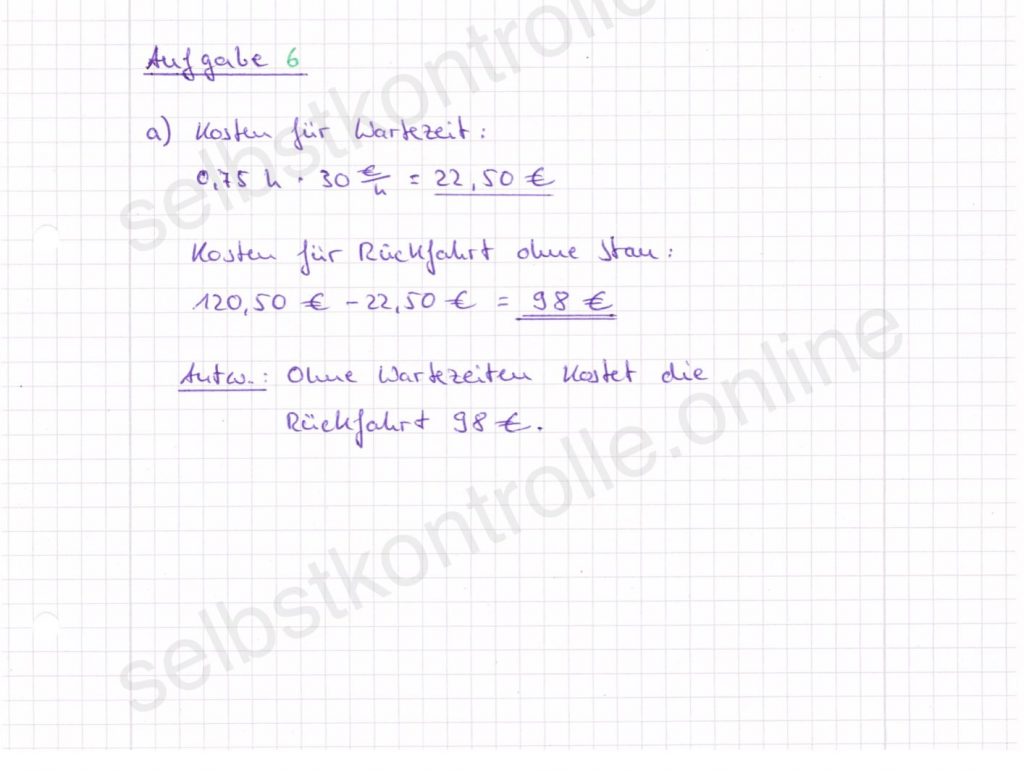 Aufgabe 6
a) Kosten für Wartezeit:
0,75 h · 30 €/h = 22,50 €
Kosten für Rückfahrt ohne Stau:
120,50 € - 22,50 € = 98 €
Antw.: Ohne Wartezeiten kostet die
Rückfahrt 98 €.
selbstkontrolle.online
selbstkontrolle.online